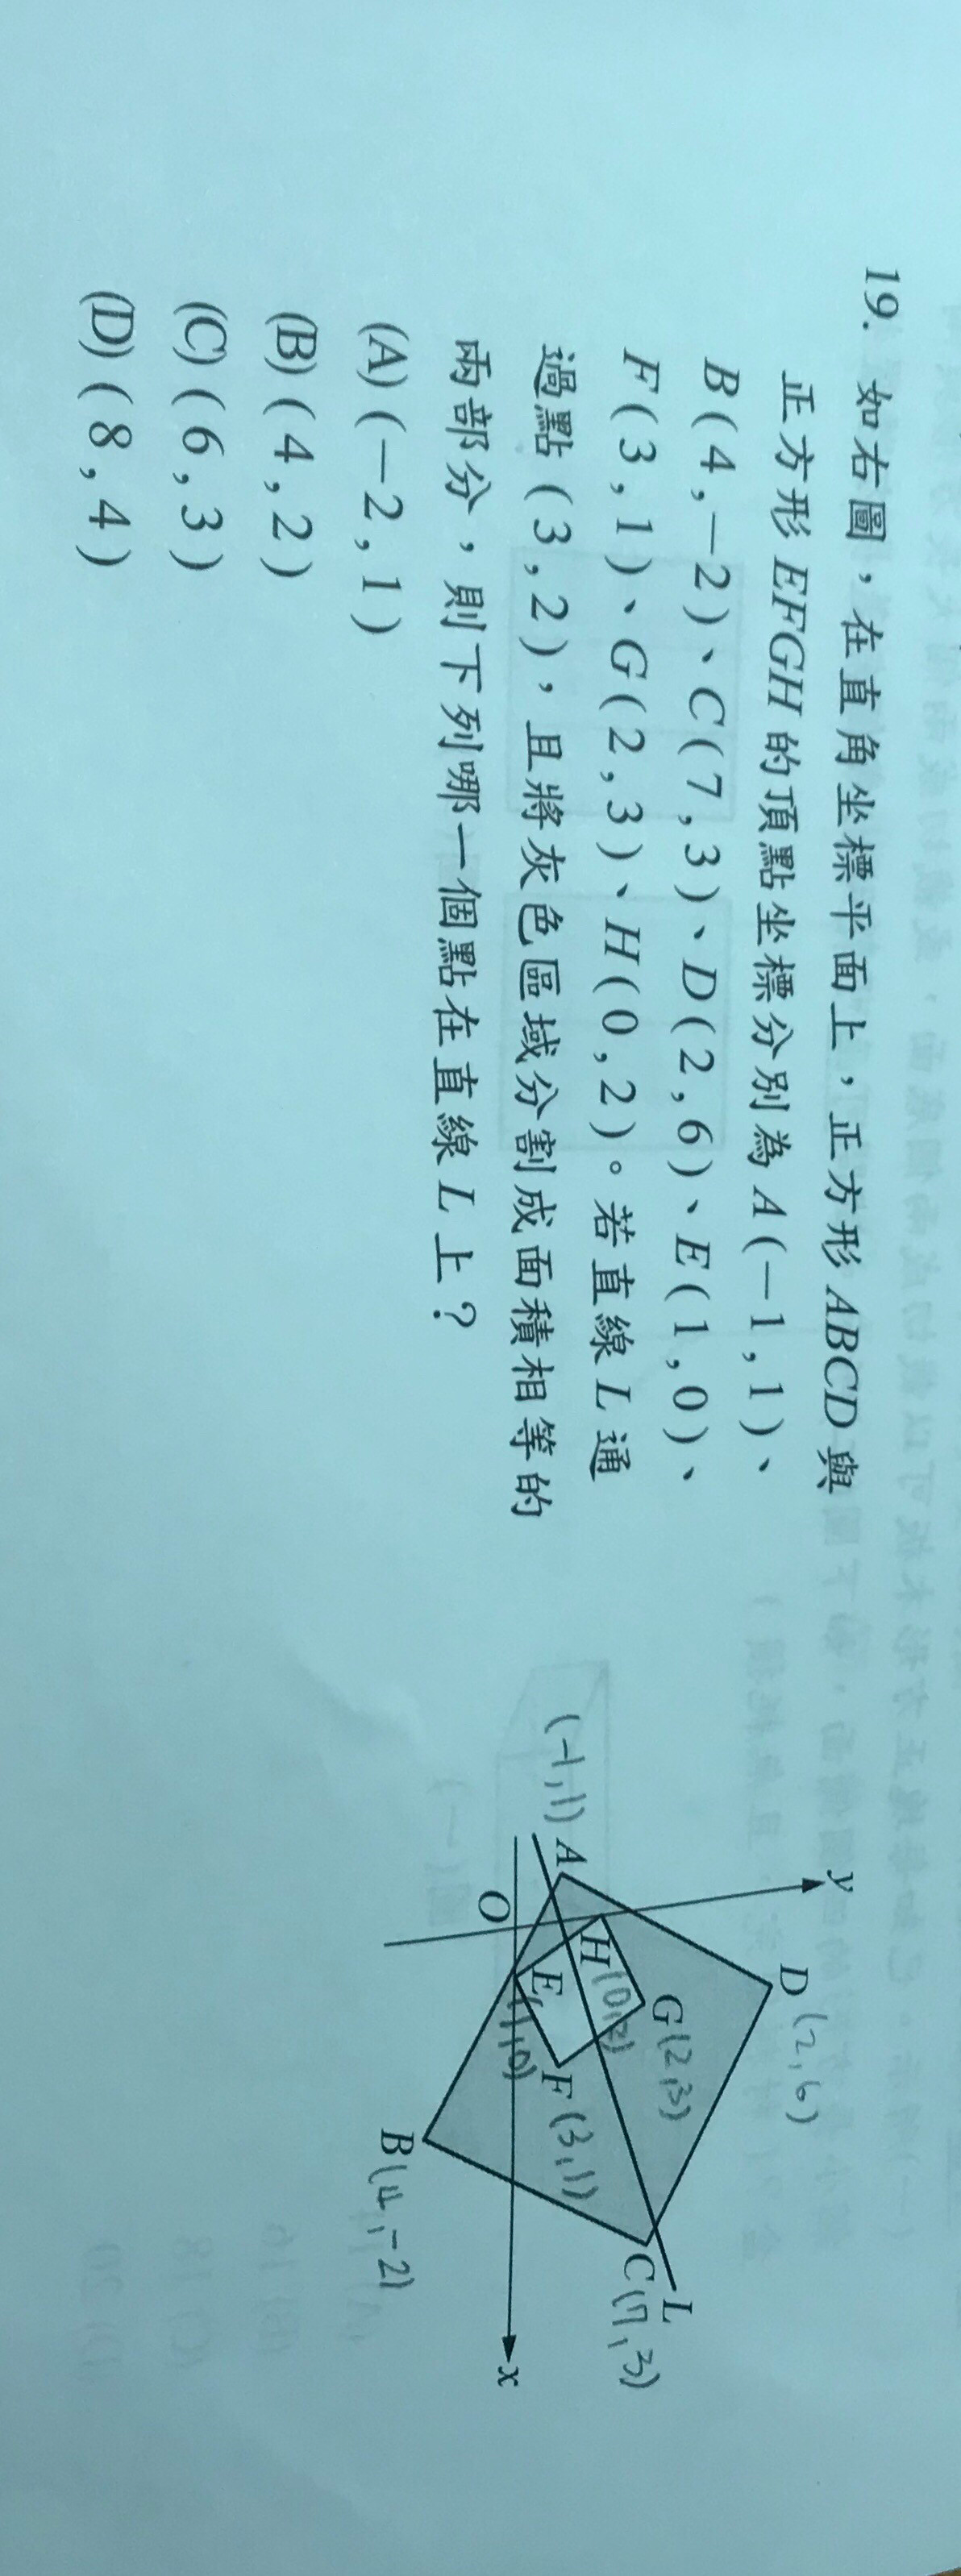 19. 如右圖，在直角坐標平面上，正方形ABCD與
正方形EFGH的頂點坐標分別為A(-1,1)、
B(4,-2)、C(7,3)、D(2,6)、E(1,0)、
F(3,1)、G(2,3)、H(0,2)。若直線L通
過點(3,2)，且將灰色區域分割成面積相等的
兩部分，則下列哪一個點在直線L上？
(A)(-2,1)
(B)(4,2)
(C)(6,3)
(D)(8,4)
y
D(2,6)
G(2,3)
(-1,1) A
H(0,2)
F(3,1)
L
C(7,3)
O
E(1,0)
x
B(4,-2)